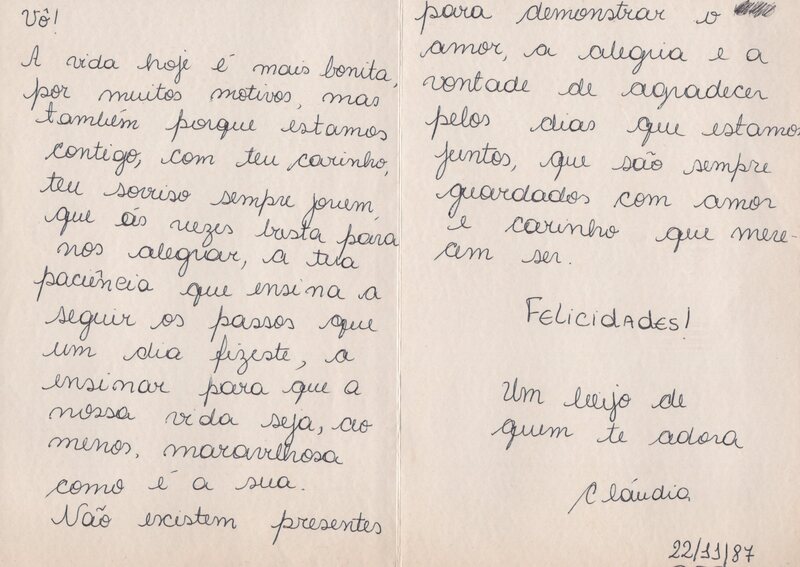 Vô!
A vida hoje é mais bonita,
por muitos motivos, mas
também porque estamos
contigo, com teu carinho,
teu sorriso sempre jovem,
que às vezes basta para
nos alegrar, a tua
paciência que ensina a
seguir os passos que
um dia fizeste, a
ensinar para que a
nossa vida seja, ao
menos, maravilhosa
como é a sua.
Não existem presentes
para demonstrar o
amor, a alegria e a
vontade de agradecer
pelos dias que estamos
juntos, que são sempre
guardados com amor
e carinho que mere-
cem ser.
FELICIDADES!
Um beijo de
quem te adora
Cláudia
22/11/87